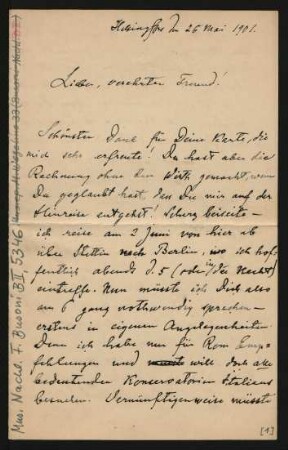 Helsingfors d. 26 Mai 1901.
Lieber, verehrter Freund!
Schönsten Dank für Deine Karte, die
mich sehr erfreute! Du hast aber die
Rechnung ohne den Wirth gemacht, wenn
Du geglaubt hast, dass Du mir auf der
Hinreise entgehst. Scherz beiseite –
ich reise am 2 Juni von hier ab
über Stettin nach Berlin, wo ich hof-
fentlich abends d. 5 (oder in der Nacht)
eintreffe. Nun müsste ich Dich also
am 6 ganz nothwendig sprechen –
erstens in eigenen Angelegenheiten.
Denn ich habe nur für Rom Emp-
fehlungen und will doch alle
bedeutenden Konservatorien Italiens
besuchen. Vernünftigerweise müsste
Mus. Nachl. F. Busoni B II, 5346
[1]